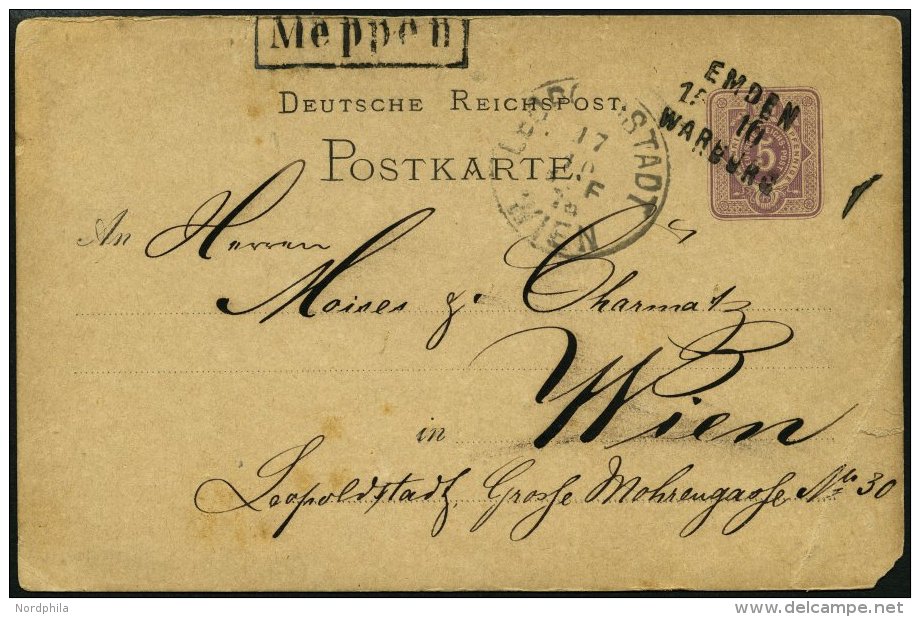 Meppen
DEUTSCHE REICHSPOST.
POSTKARTE.
EMDEN
10
WARBURG
LEOPOLDSTADT
17
F
WIEN
5
An Herren
Moises & Charmatz
Wien
in
Leopoldstadt, Grosse Mohrengasse No 30
Nordphila
www.delcampe.net